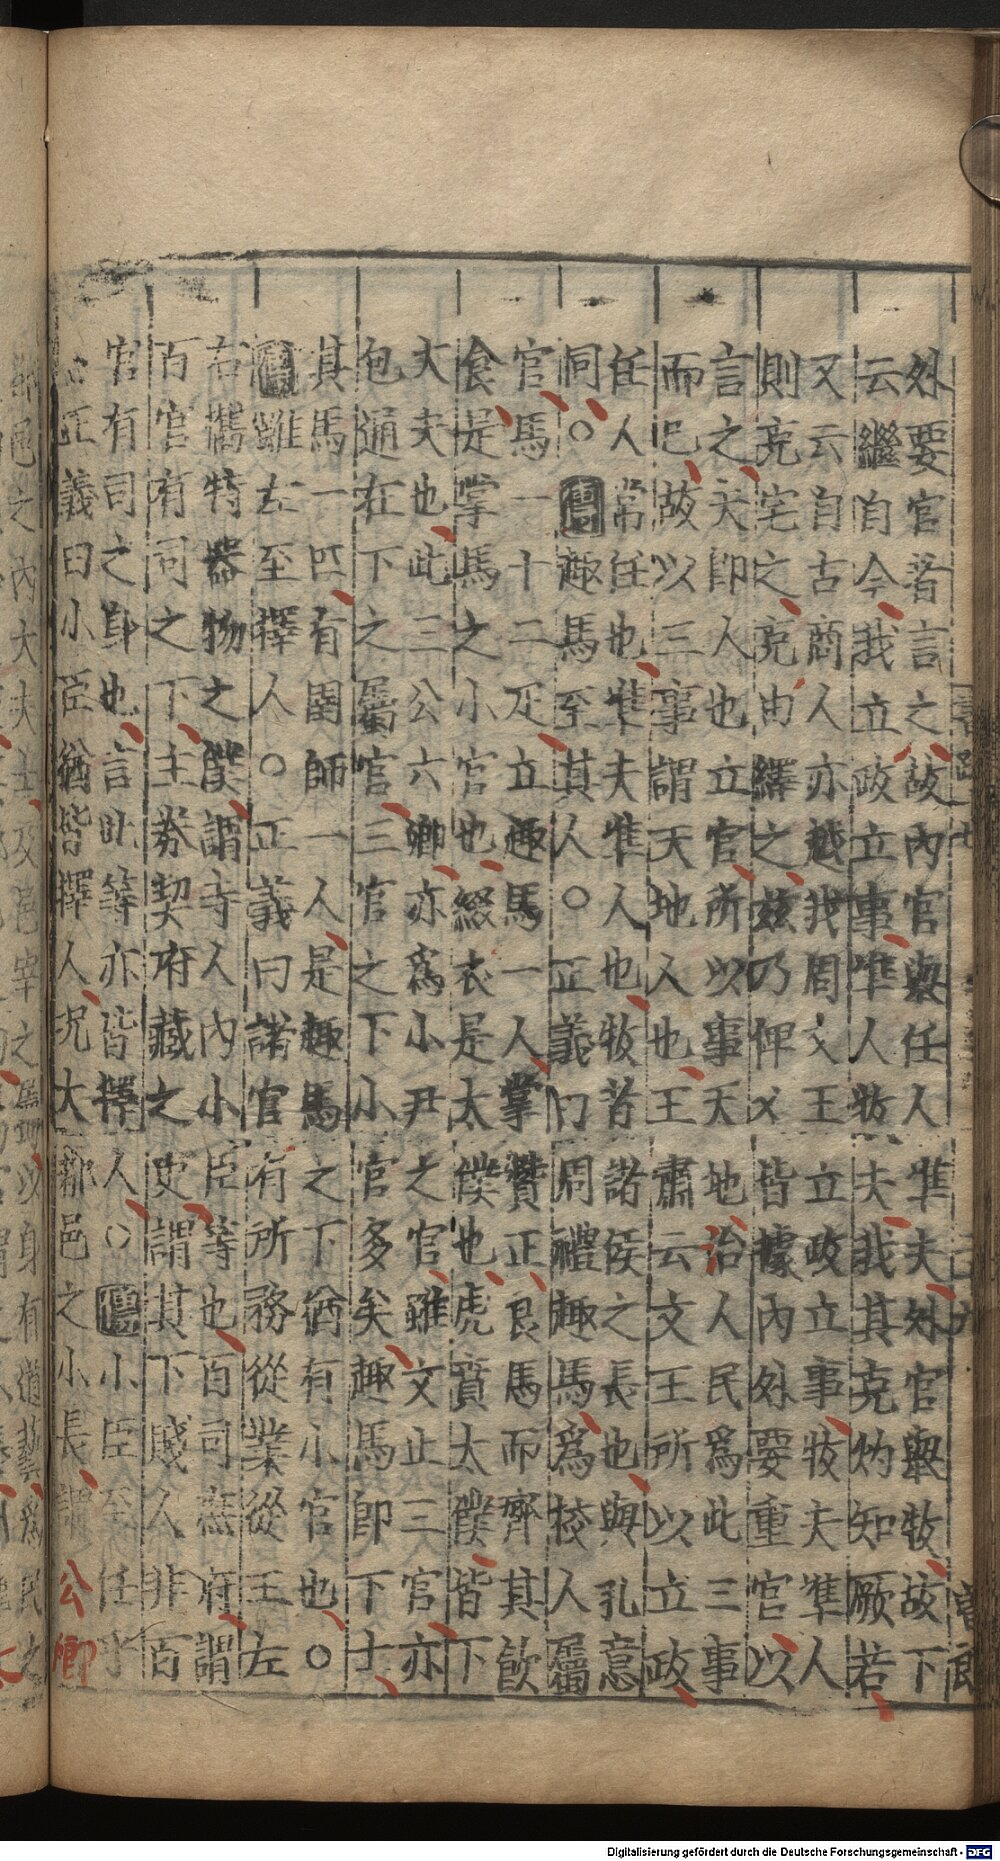 外要官者言之故內官舉任人準夫外官舉牧故下
云繼自今我立政立事準人牧夫我其克灼知厥若
又云自古商人亦越我周文王立政立事牧夫準人
則克宅之克由繹之茲乃俾乂皆據內外要重官以
言之夫卽人也立官所以事天地治人民爲此三事
而已故以三事謂天地人也王肅云文王所以立政
任人常任也準夫準人也牧者諸侯之長也與孔意
同○傳趣馬至其人○正義曰周禮趣馬爲校人屬
官馬一十二疋立趣馬一人掌贊正良馬而齊其飲
食是掌馬之小官也綴衣是太僕也虎賁太僕皆下
大夫也此三公六卿亦爲小尹之官雖文止三官亦
包通在下之屬官三官之下小官多矣趣馬卽下士
其馬一匹有圉師一人是趣馬之下猶有小官也○
傳雖左至擇人○正義曰諸官有所務從業從王左
右攜特器物之僕謂寺人內小臣等也百司庶府謂
百官有司之下主券契府藏之吏謂其下賤人非百
官有司之身也言此等亦皆擇人○傳小臣至任乎
正義曰小臣猶皆擇人況大都邑之小長謂公卿
Digitalisierung gefördert durch die Deutsche Forschungsgemeinschaft - DFG